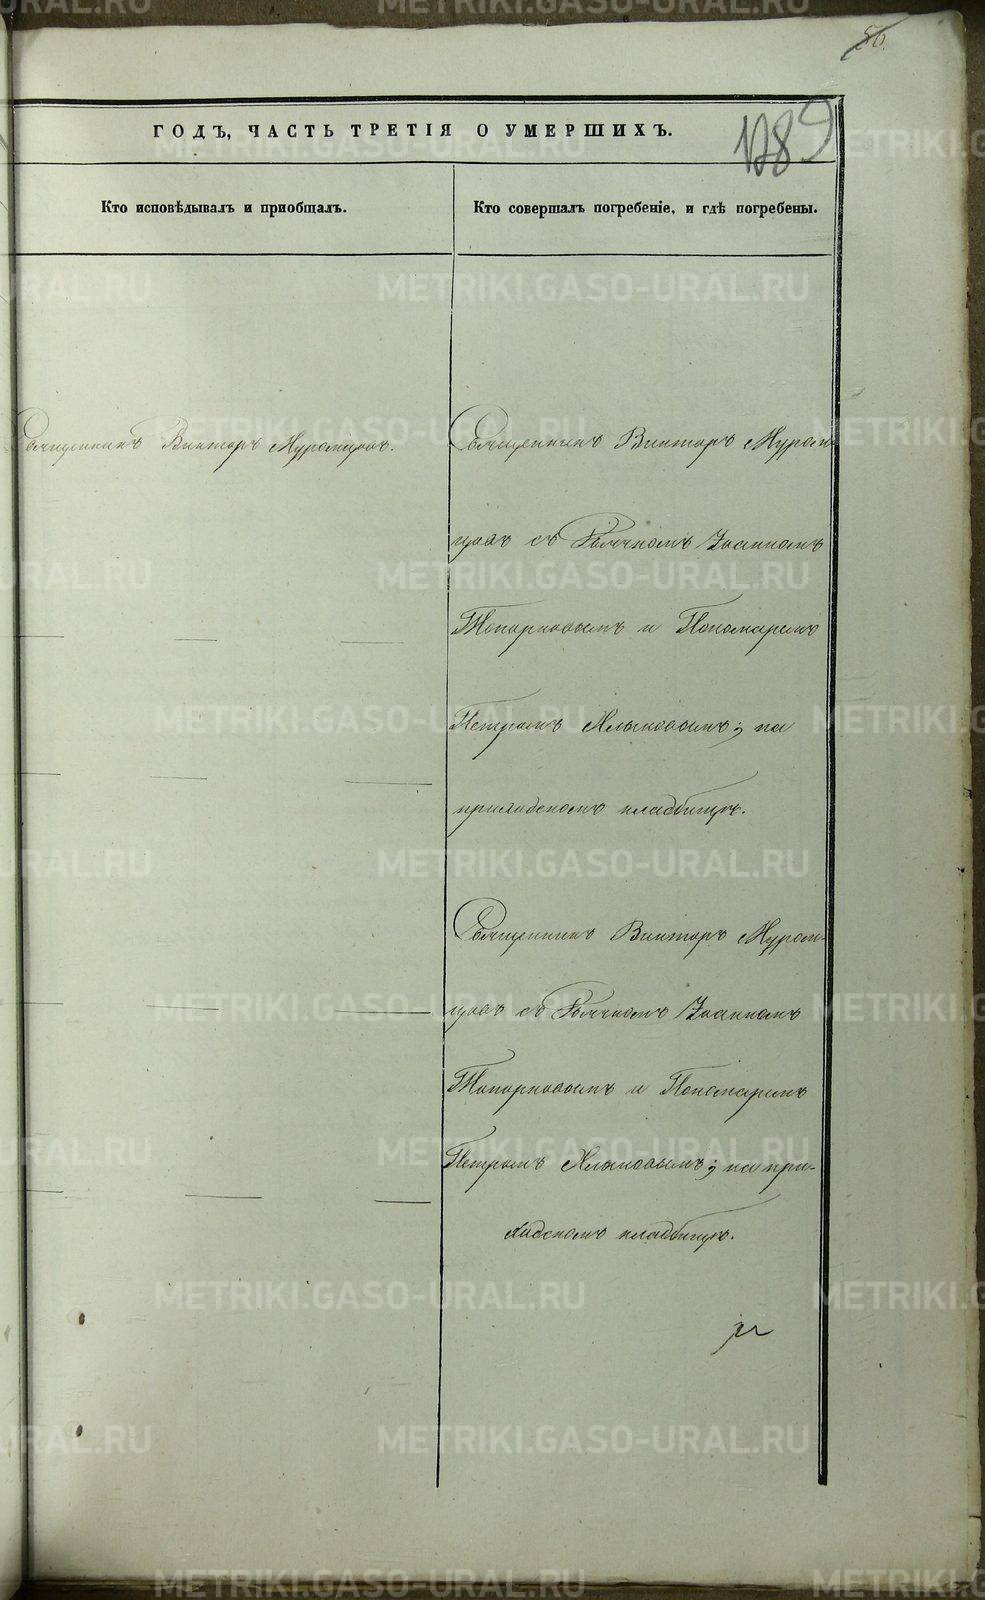 50.
1789
ГОДЪ, ЧАСТЬ ТРЕТІЯ О УМЕРШИХЪ.
Кто исповѣдывалъ и пріобщалъ.
Кто совершалъ погребеніе, и гдѣ погребены.
Священникъ Викторъ Муромцовъ.
Священникъ Викторъ Муром-
цовъ съ Іоанномъ
Топорковымъ и Пономаремъ
Петромъ Хлыновымъ; на
приходскомъ кладбищѣ.
Священникъ Викторъ Муром-
цовъ съ Іоанномъ
Топорковымъ и Пономаремъ
Петромъ Хлыновымъ; на при-
ходскомъ кладбищѣ.
METRIKI.GASO-URAL.RU